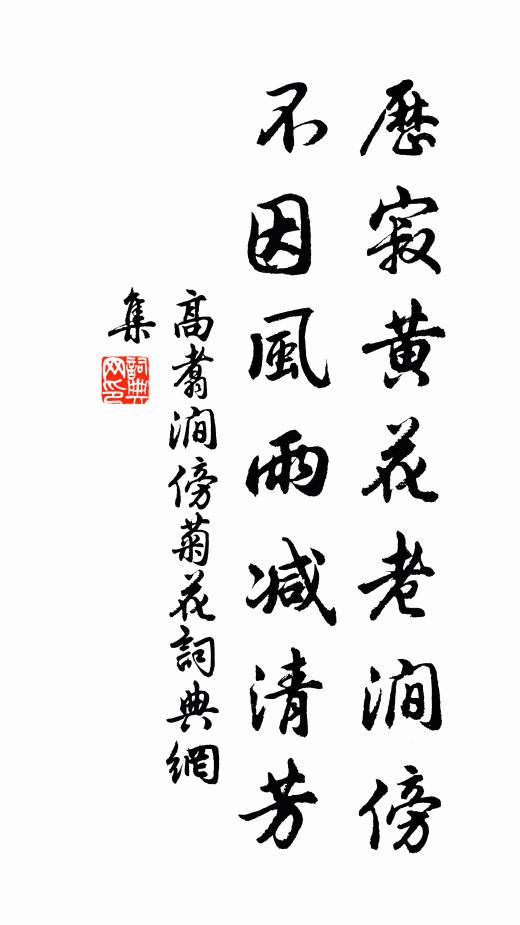 歷寂黄花老澗傍
不因風雨減清芳
高翥澗傍菊花詞典網
集
詞典
网印